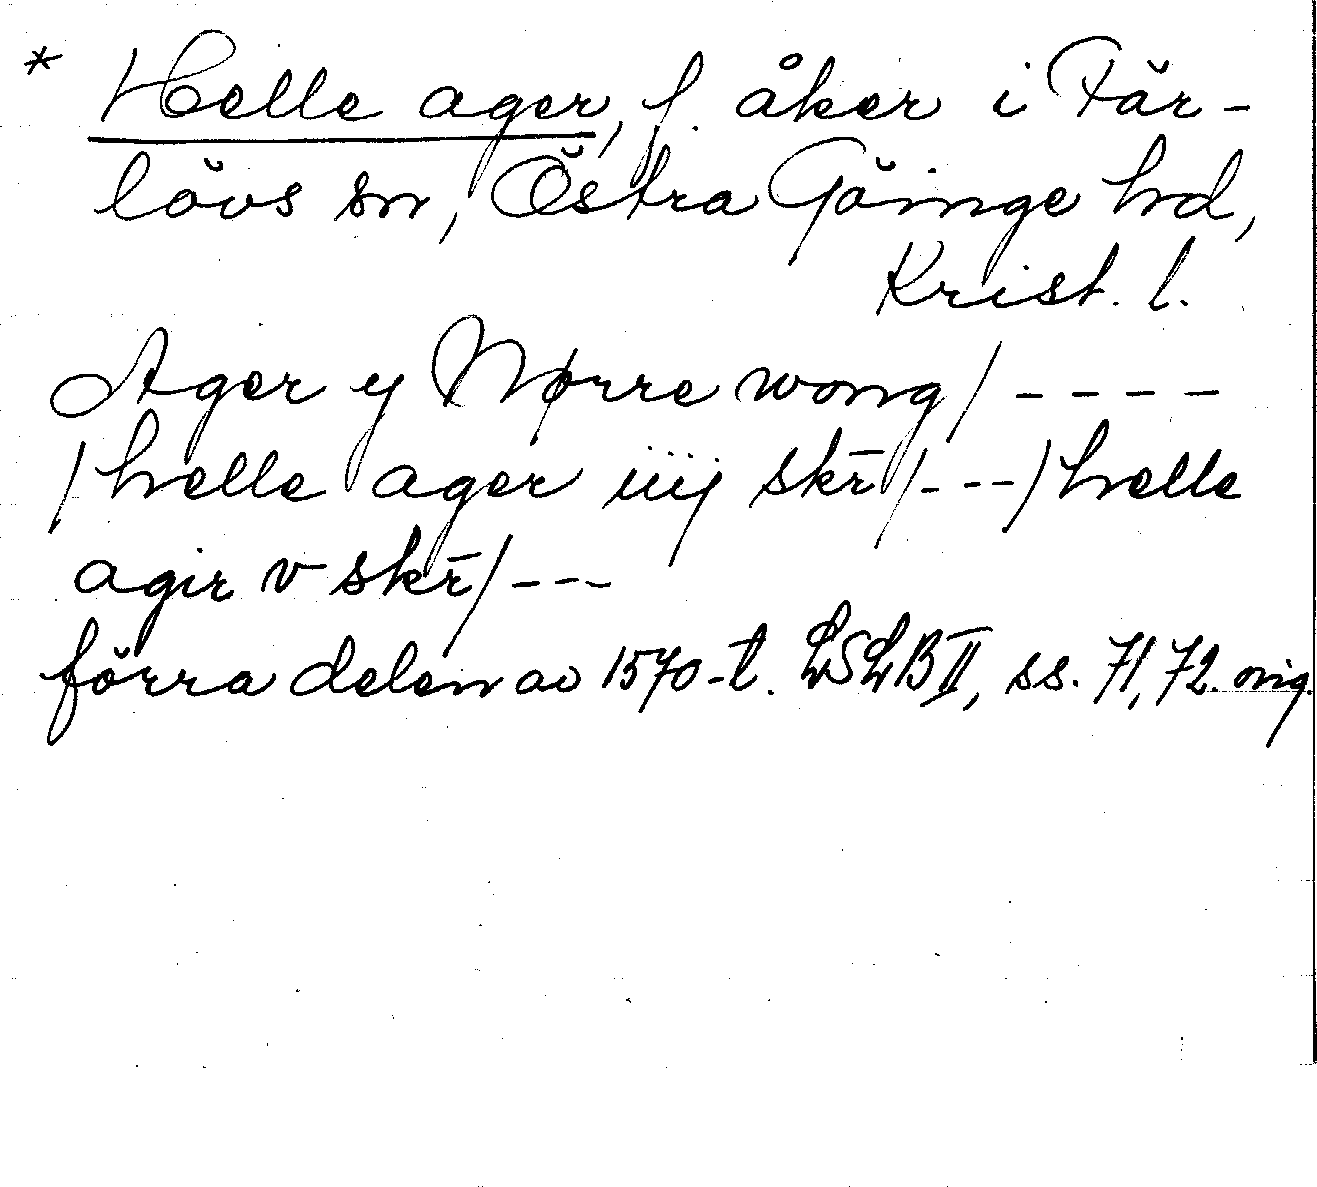 * Helle ager, f. åker i Fär-
lövs sn, Östra Göinge hd,
Krist. l.
Ager y Nørre wong/ - - - -
/helle ager iiij skr̄/- - -/helle
agir v skr̄/- - -
förra delen av 1570-t. LSLB II, ss. 71, 72. orig.